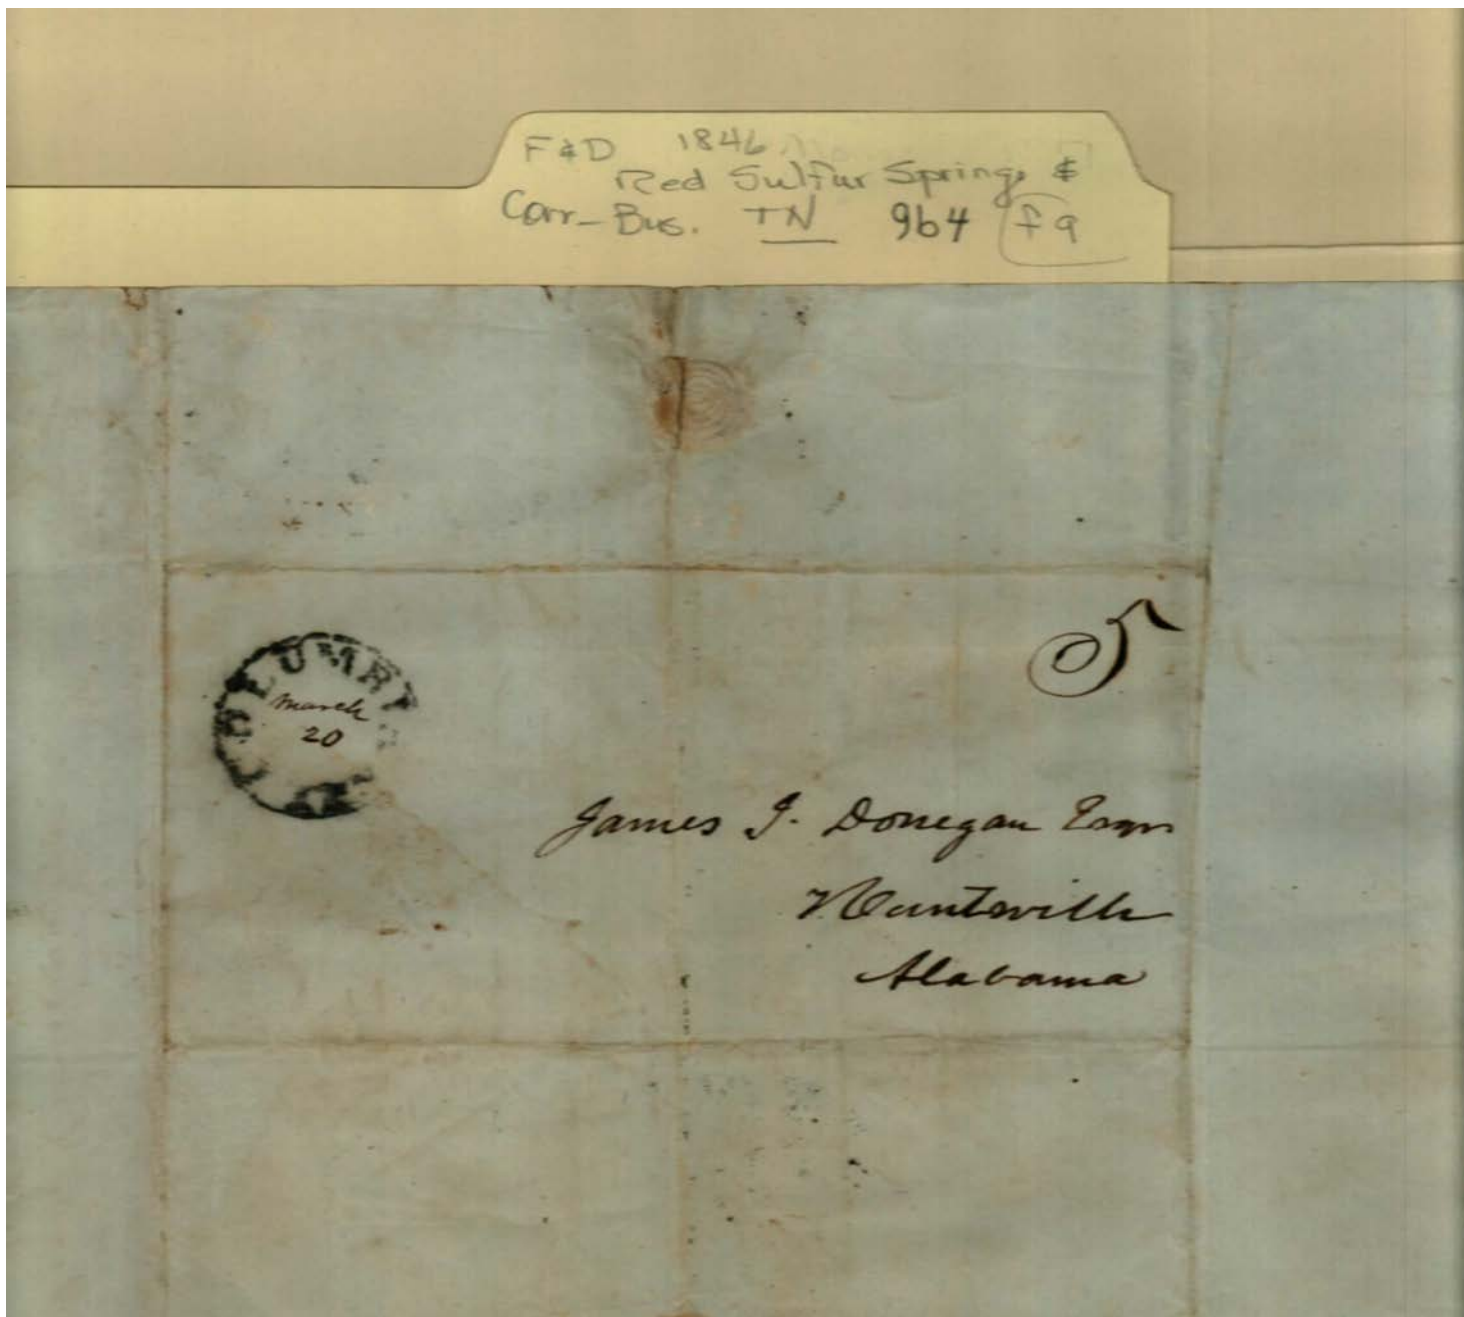 F&D 1846
Red Sulfur Springs &
Corr-Bus. TN 964 f9
5
COLUMBIA
March
20
James J. Donegan Esqr
Huntsville
Alabama